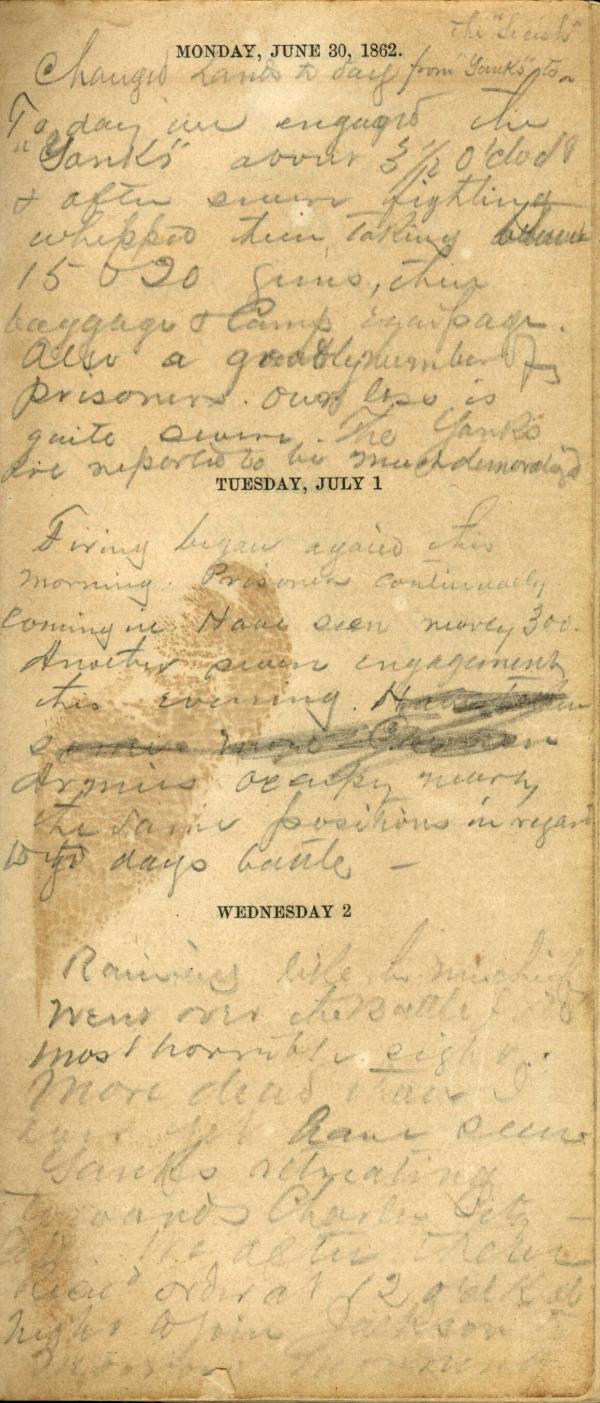 the "Secesh"
MONDAY, JUNE 30, 1862.
Changed hands to day from "Yanks" to
To day we engaged the
"Yanks" about 3 1/2 O'clock
& after severe fighting
whipped them, taking
15 or 20 guns, their
baggage & Camp equipage.
Also a goodly number of
prisoners. Our loss is
quite severe. The Yanks
are reported to be much demoralized
TUESDAY, JULY 1
Firing began again this
morning. Prisoners continually
coming in Have seen nearly 300.
Another severe engagement
this evening.
Armies occupy nearly
the same positions in regard
to to days battle –
WEDNESDAY 2
Raining like the mischief
Went over the Battle field
most horrible sight.
More dead than I
ever yet have seen
Yanks retreating
towards Charles City –
after them
order at 12 oclk at
night to join Jackson